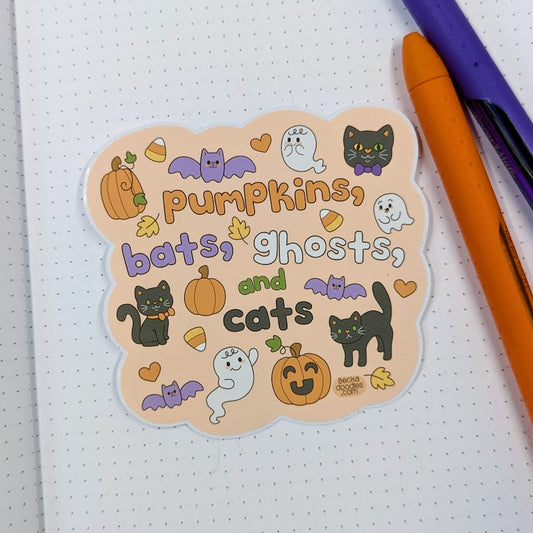 pumpkins,
bats, ghosts,
and
cats
Becka
doodles
.com